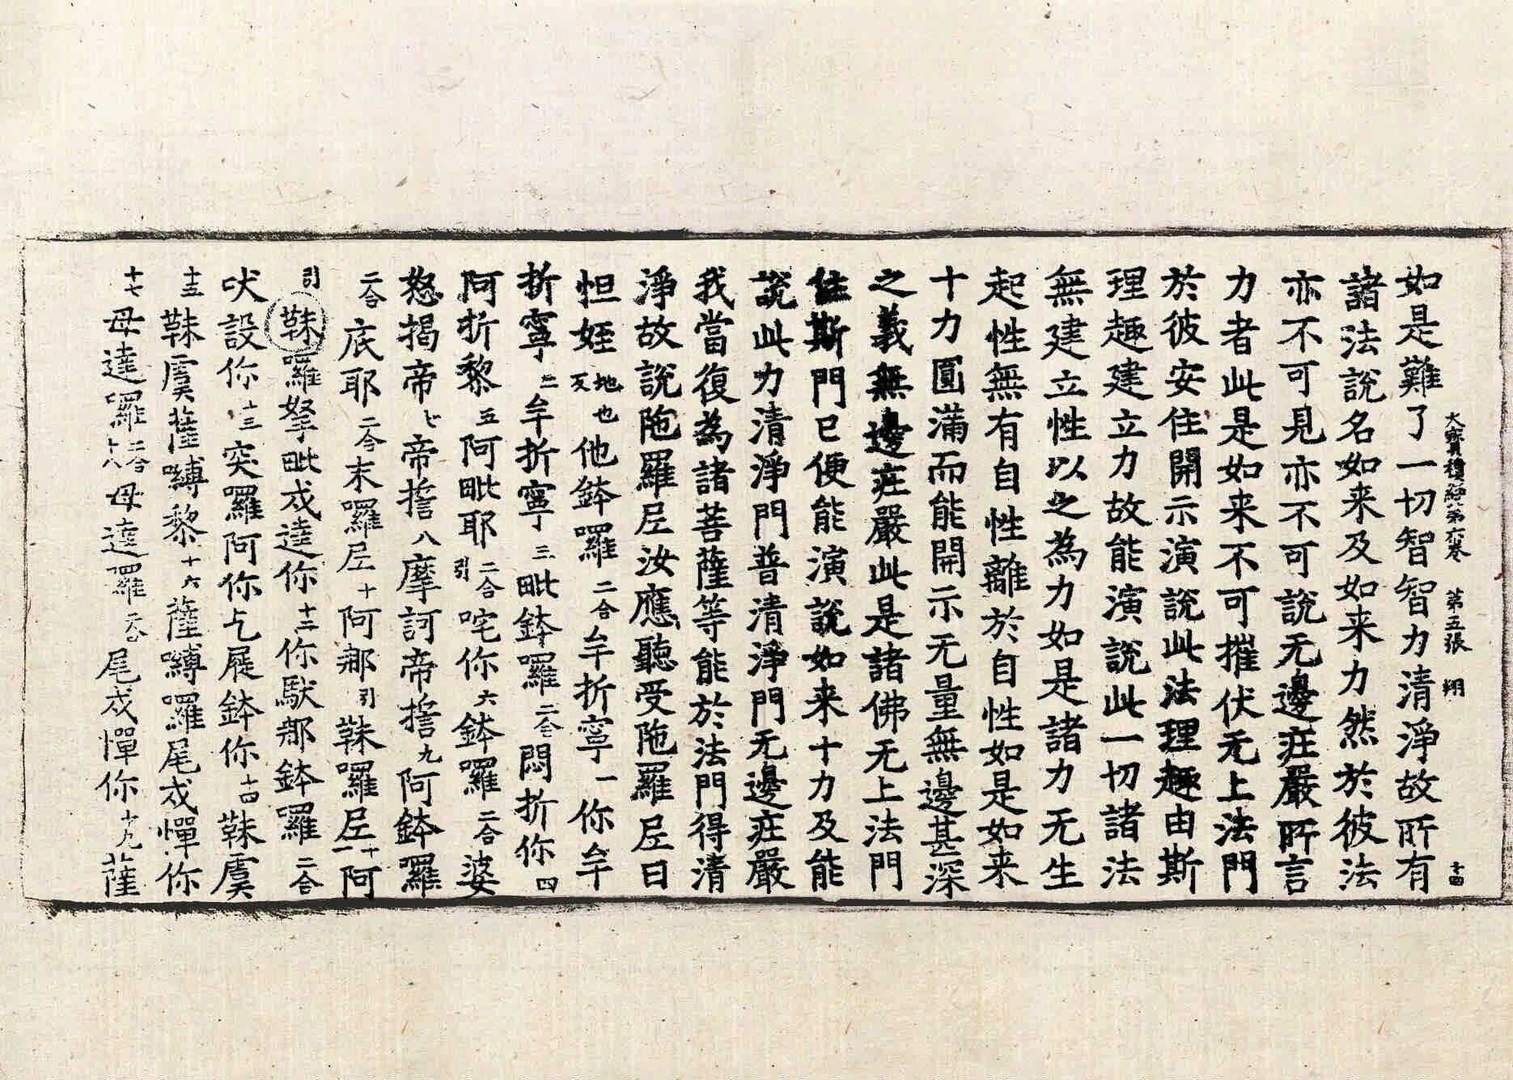 大寶積經第六卷　第五張　翔
十四
如是難了一切智智力清淨故所有
諸法說名如来及如来力然於彼法
亦不可見亦不可說无邊庄嚴所言
力者此是如来不可摧伏无上法門
於彼安住開示演說此法理趣由斯
理趣建立力故能演說此一切諸法
無建立性以之為力如是諸力无生
起性無有自性離於自性如是如来
十力圓滿而能開示无量無邊甚深
之義無邊庄嚴此是諸佛无上法門
住斯門已便能演說如来十力及能
說此力清淨門普清淨門无邊庄嚴
我當復為諸菩薩等能於法門得清
淨故說陁羅尼汝應聽受陁羅尼曰
怛姪地也反他鉢囉二合牟折寧一你牟
折寧二牟折寧三毗鉢囉二合悶折你四
阿折黎五阿毗耶二合引咤你六鉢囉二合婆
怒揭帝七帝誓八摩訶帝誓九阿鉢囉
二合底耶二合末囉尼十阿那引靺囉尼十一阿
引靺囉拏毗戍達你十二你馱那鉢囉二合
吠設你十三突囉阿你乞屣鉢你十四靺虞
十五靺虞薩嚩黎十六薩嚩囉尾戍憚你
十七母達囉二合十八母達囉二合尾戍憚你十九薩